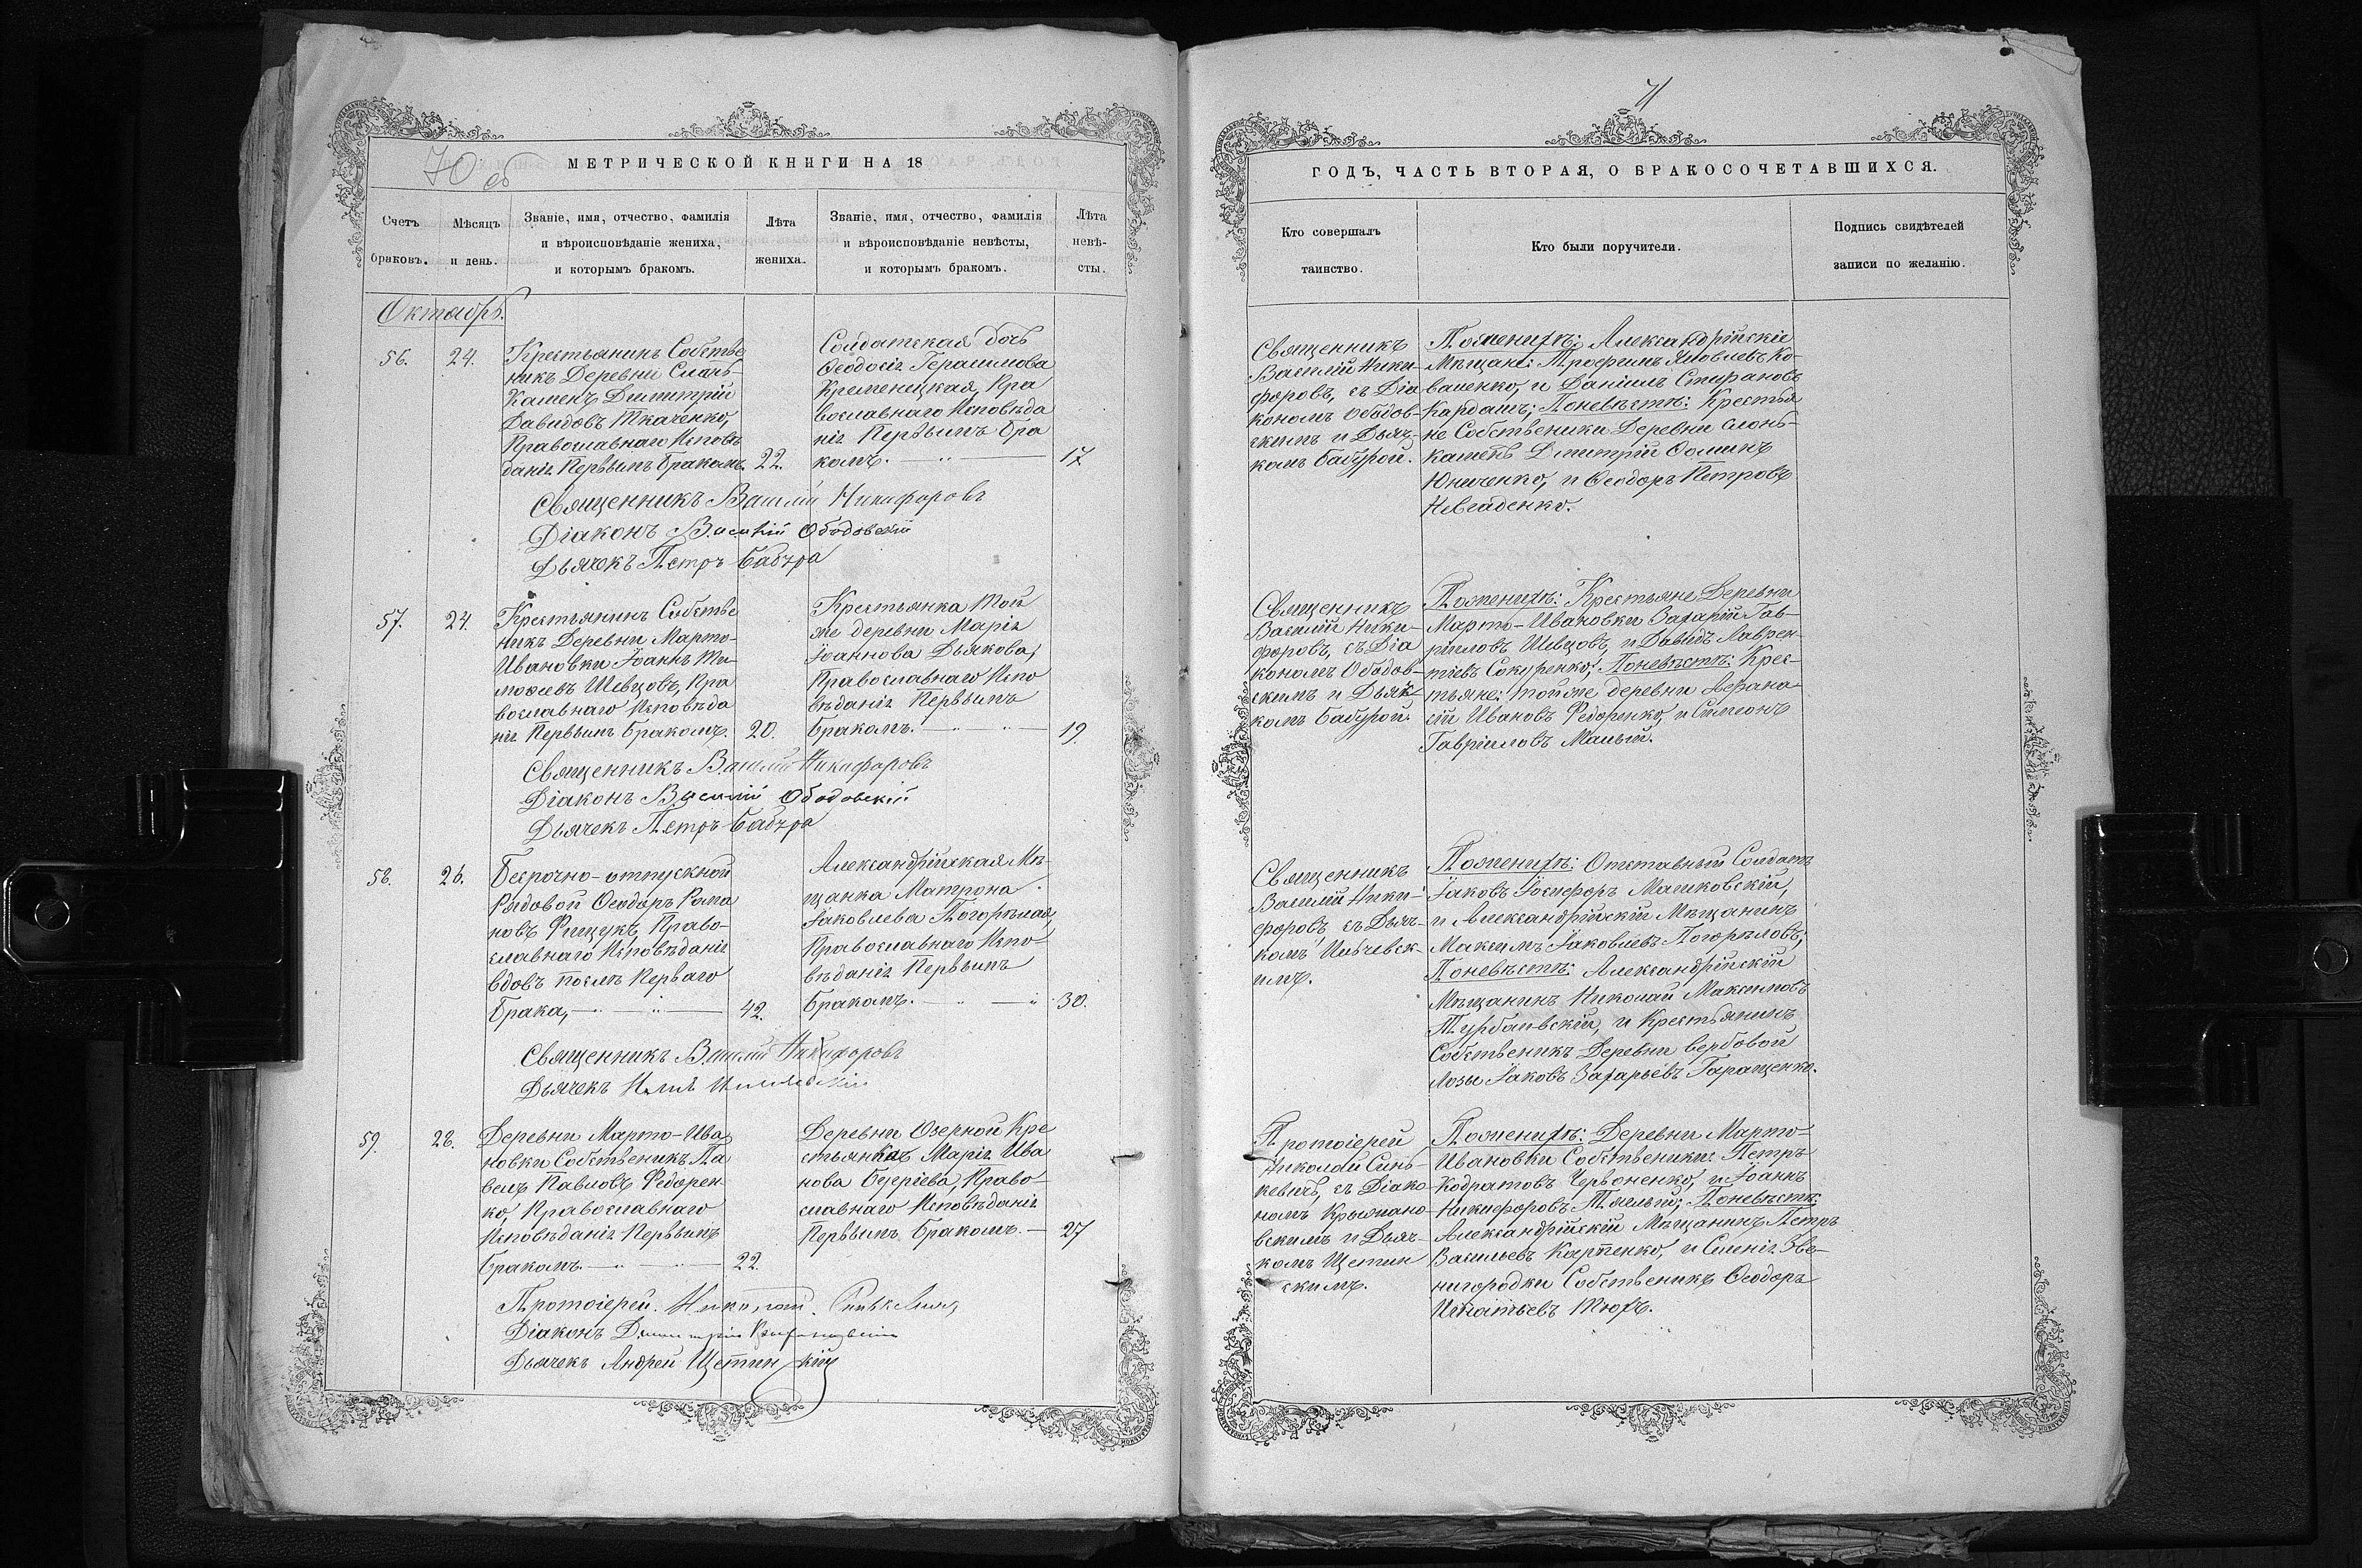 70 об
МЕТРИЧЕСКОЙ КНИГИ НА 18
Счетъ браковъ.
Мѣсяцъ и день.
Званіе, имя, отчество, фамилія
и вѣроисповѣданіе жениха,
и которымъ бракомъ.
Лѣта
жениха.
Званіе, имя, отчество, фамилія
и вѣроисповѣданіе невѣсты,
и которымъ бракомъ.
Лѣта
невѣ-
сты.
Октябрь.
56.
24.
Крестьянинъ Собстве
никъ Деревни Слонь-
Камень Димитрій
Давидовъ Ткаченко,
Православнаго Исповѣ
данія Первымъ Бракомъ.
22.
Солдатская дочь
Ѳеодосія Герасимова
Кременецкая, Пра
вославнаго Исповѣда
нія Первымъ Бра
комъ.
17
Священникъ Василій Никифоровъ
Діаконъ Василій Ободовскій
Дьячекъ Петръ Бабура
57.
24.
Крестьянинъ Собстве
никъ Деревни Марто-
Ивановки Іоаннъ Ти-
моѳеевъ Шевцовъ, Пра
вославнаго Исповѣда
нія Первымъ Бракомъ.
20.
Крестьянка той
же деревни Марія
Іоаннова Дьякова,
Православнаго Испо
вѣданія Первымъ
Бракомъ.
19.
Священникъ Василій Никифоровъ
Діаконъ Василій Ободовскій
Дьячекъ Петръ Бабура
58.
26.
Безрочно-отпускной
Рядовой Ѳеодоръ Рома
новъ Фищукъ, Право-
славнаго Исповѣданія
вдовъ послѣ Перваго
Брака,
42.
Александрійская Мѣ-
щанка Матрона
Іаковлева Погорѣлая,
Православнаго Испо-
вѣданія Первымъ
Бракомъ.
30.
Священникъ Василій Никифоровъ
Дьячекъ
59.
28.
Деревни Марто-Ива
новки Собственикъ Па
велъ Павловъ Федорен
ко, Православнаго
Исповѣданія Первымъ
Бракомъ.
22.
Деревни Озерной Кре
стьянка Марія Ива
нова Право-
славнаго Исповѣданія
Первымъ Бракомъ.
27
Протоіерей Николай Синькевичъ
Діаконъ Димитрій
Дьячекъ Андрей Щетинскій
71
ГОДЪ, ЧАСТЬ ВТОРАЯ, О БРАКОСОЧЕТАВШИХСЯ.
Кто совершалъ
таинство.
Кто были поручители.
Подпись свидѣтелей
записи по желанію.
Священникъ
Василій Ники-
форовъ, съ Діа
кономъ Ободов-
скимъ и Дьяч-
комъ Бабурой.
По женихѣ: Александрійскіе
Мѣщане: Трофимъ Яковлевъ Ко-
валенко, и Даніилъ Стефановъ
Кардашъ; По невѣстѣ: Крестья
не Собственики Деревни Слонь-
камень Дмитрій Ѳоминъ
Юниченко, и Ѳеодоръ Петровъ
Невгаденко.
Священникъ
Василій Ники-
форовъ, съ Діа
кономъ Ободов-
скимъ и Дьяч-
комъ Бабурой.
По женихѣ: Крестьяне Деревни
Марто-Ивановки Захарій Гав-
рииловъ Шевцовъ, и Давидъ Лаврен-
тіевъ Сокуренко; По невѣстѣ: Крес-
тьяне: той же деревни Афана-
сій Ивановъ Федоренко, и Симеонъ
Гавріиловъ Малый.
Священникъ
Василій Ники-
форовъ съ Дьяч-
комъ
имъ.
По женихѣ: Отставный Солдатъ
Іаковъ Машковскій,
и Александрійскій Мѣщанинъ
Максимъ Іаковлевъ Погорѣловъ;
По невѣстѣ: Александрійскій
Мѣщанинъ Николай Максимовъ
Турбаивскій, и Крестьянинъ
Собственикъ Деревни Вербовой
Лозы Іаковъ Захарьевъ Гаращенко.
Протоіерей
Николай Синь-
кевичъ, съ Діако-
номъ
вскимъ и Дьяч-
комъ Щетин
скимъ.
По женихѣ: Деревни Марто-
Ивановки Собственики: Петръ
Кодратовъ Червоненко, и Іоаннъ
Никифоровъ По невѣстѣ:
Александрійскій Мѣщанинъ Петръ
Васильевъ Карпенко, и Селенія Зве-
нигородки Собственикъ Ѳеодоръ
Игнатьевъ Тюхъ.